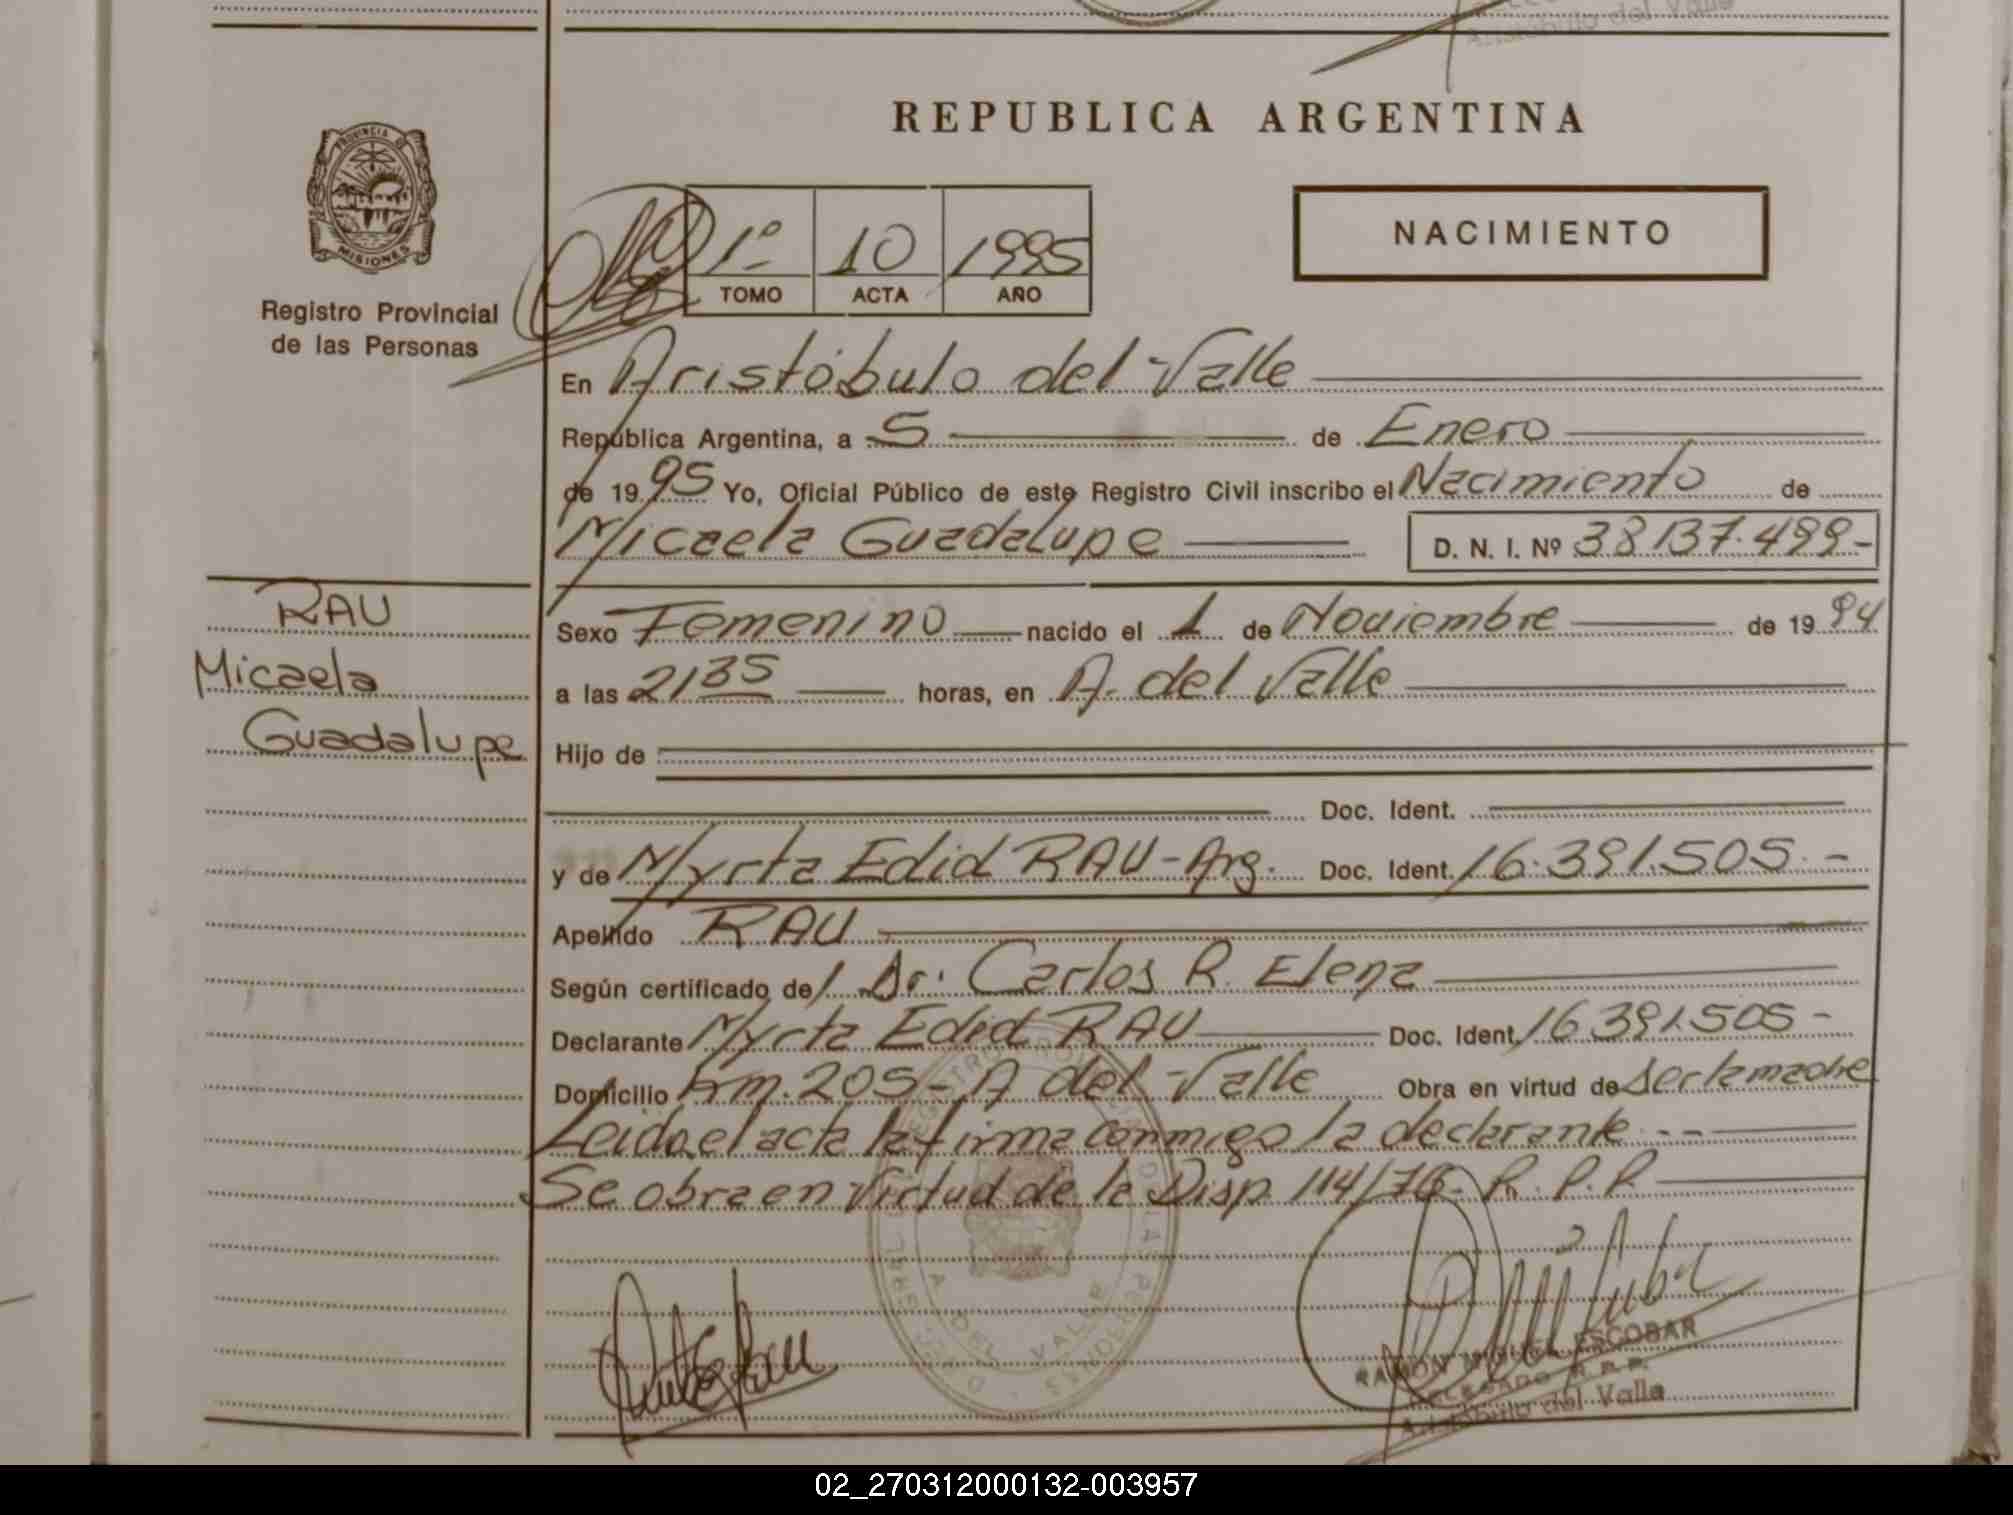 Aristóbulo del Valle
REPUBLICA ARGENTINA
PROVINCIA DE
MISIONES
Registro Provincial
de las Personas
1º 10 1995
TOMO ACTA AÑO
NACIMIENTO
En Aristóbulo del Valle
República Argentina, a 5 de Enero
de 1995 Yo, Oficial Público de este Registro Civil inscribo el Nacimiento de
Micaela Guadalupe D. N. I. Nº 38137.499-
RAU
Micaela
Guadalupe
Sexo Femenino nacido el 1 de Noviembre de 1994
a las 2135 horas, en A. del Valle
Hijo de
Doc. Ident.
y de Myrta Edid RAU - Arg. Doc. Ident. 16.391.505.-
Apellido RAU
Según certificado de Dr. Carlos R. Elena
Declarante Myrta Edid RAU Doc. Ident. 16391.505-
Domicilio Km. 205 - A del Valle Obra en virtud de
Leida el acta la firma conmigo la declarante
Se obra en virtud de la Disp. 114/76- R. P. P.
RAMON MIGUEL ESCOBAR
DELEGADO R. P. P.
Aristóbulo del Valle
A. DEL VALLE
02_270312000132-003957